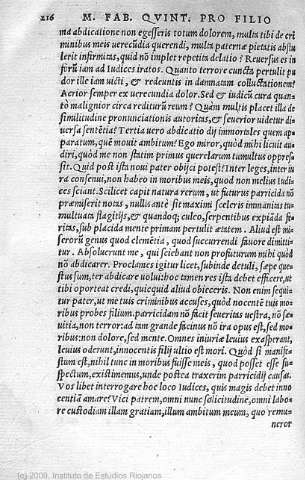 216 M. FAB. QVINT. PRO FILIO
ma abdicatione non egesseris totum dolorem, multa tibi de cri
minibus meis uerecundia querendi, multa paterna pietatis abstu
lerit infirmitas, quid nõ implet repetita delatio? Reuersus es in
forũ iam ad Iudices iratos. Quanto terrore cuncta pertulit pa
dor ille iam uicti, & redeuntis in damnatum collectationem?
Acrior semper ex uerecundia dolor. Sed & iudicũ cura quan
to malignior circa rediturũ reum? Quàm multis placet illa de
similitudine pronunciationis autoritas, & seuerior uidetur di
uersa sentẽtia? Tertia uero abdicatio dij immortales quem ap
paratum, quẽ mouit ambitum? Ego miror, quòd mihi licuit au
diri, quòd me non statim primus querelarum tumultus oppres
sit. Quid post ista noui pater obijci potest? Inter leges, inter iu
ra consenui, non habeo in moribus meis, quod non melius Iudi
ces sciant. Scilicet capit natura rerum, ut futurus parricida nõ
præmiserit notas, nullis ante sit maximi sceleris immanitas tu
multuata flagitijs, & quandoq; culeo, serpentibus expiãda fe
ritas, sub placida mente primam pertulit ætatem. Aliud est mi
serorũ genus quod clemẽtia, quod succurrendi fauore dimitti
tur. Absoluerunt me, qui sciebant non profuturum mihi quòd
nõ abdicarer. Proclames igitur licet, subinde detuli, sæpe que
stus sum, ter abdicare uolui: hoc tamen res ista debet efficere, ut
tibi oporteat credi, quicquid aliud obieceris. Non enim sequi
tur pater, ut me tuis criminibus accuses, quòd nocentẽ tuis mo
ribus probes filium. parricidam nõ facit seueritas uestra, nõ sæ
uitia, non terror: ad tam grande facinus nõ ira opus est, sed mo
ribus: non dolore, sed mente. Omnes iniuriæ leuius exasperant,
leuius oderunt, innocentis filij ultio est mori. Quòd si manife
stum est, nihil tunc in moribus fuisse meis, quod posset esse su
spectum, existimemus, unde postea traxerim parricidij causas.
Vos libet interrogare hoc loco Iudices, quis magis debet inno
centiã amare? Vici patrem, omni nunc solicitudine, omni labo
re custodiam illam gratiam, illum ambitum meum, quo remu
neror
(c) 2009. Instituto de Estudios Riojanos